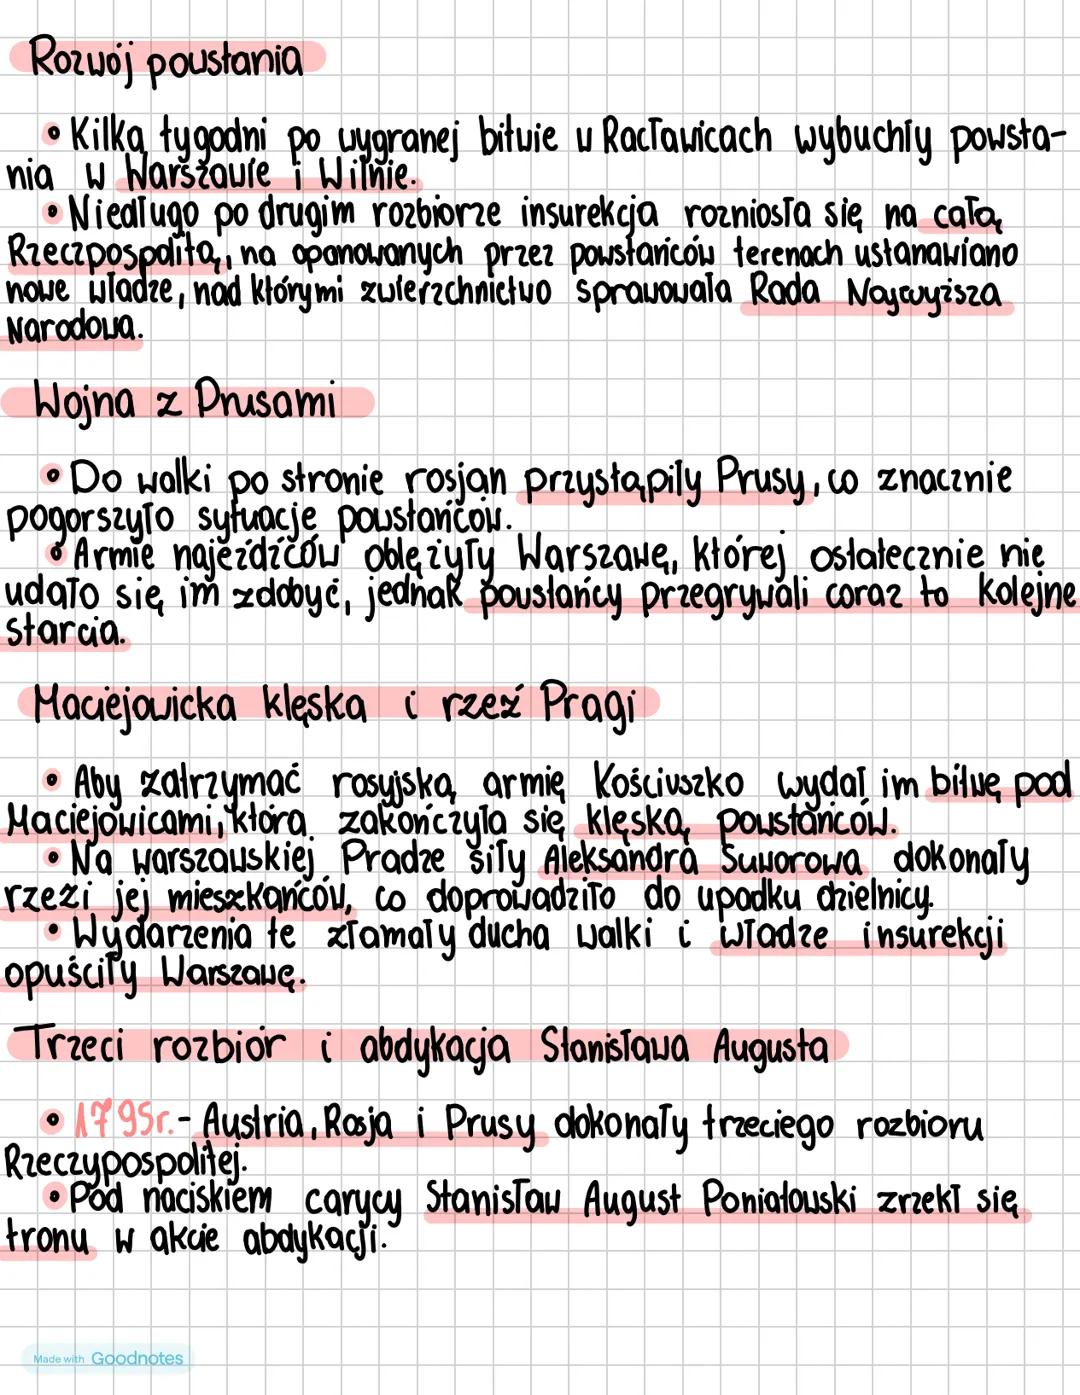 Rozwój powstania
• Kilka tygodni po wygranej bitwie w Racławicach wybuchły powsta-
nia w Warszawie i Wilnie.
• Niedługo po drugim rozbiorze insurekcja rozniosła się na całą
Rzeczpospolitą, na opanowanych przez powstańców terenach ustanawiano
nowe władze, nad którymi zwierzchnictwo sprawowała Rada Najwyższa
Narodowa.
Wojna z Prusami
• Do walki po stronie rosjan przystąpiły Prusy, co znacznie
pogorszyło sytuację powstańców.
• Armie najeźdźców oblężyły Warszawę, której ostatecznie nie
udało się im zdobyć, jednak powstańcy przegrywali coraz to kolejne
starcia.
Maciejowicka klęska i rzeź Pragi
• Aby zatrzymać rosyjską armię Kościuszko wydał im bitwę pod
Maciejowicami, która zakończyła się klęską powstańców.
• Na warszawskiej Pradze siły Aleksandra Suworowa dokonały
rzezi jej mieszkańców, co doprowadziło do upadku dzielnicy.
• Wydarzenia te złamały ducha walki i władze insurekcji
opuściły Warszawę.
Trzeci rozbiór i abdykacja Stanisława Augusta
• 1795r. - Austria, Rosja i Prusy dokonały trzeciego rozbioru
Rzeczypospolitej.
• Pod naciskiem carycy Stanisław August Poniatowski zrzekł się
tronu w akcie abdykacji.
Made with Goodnotes